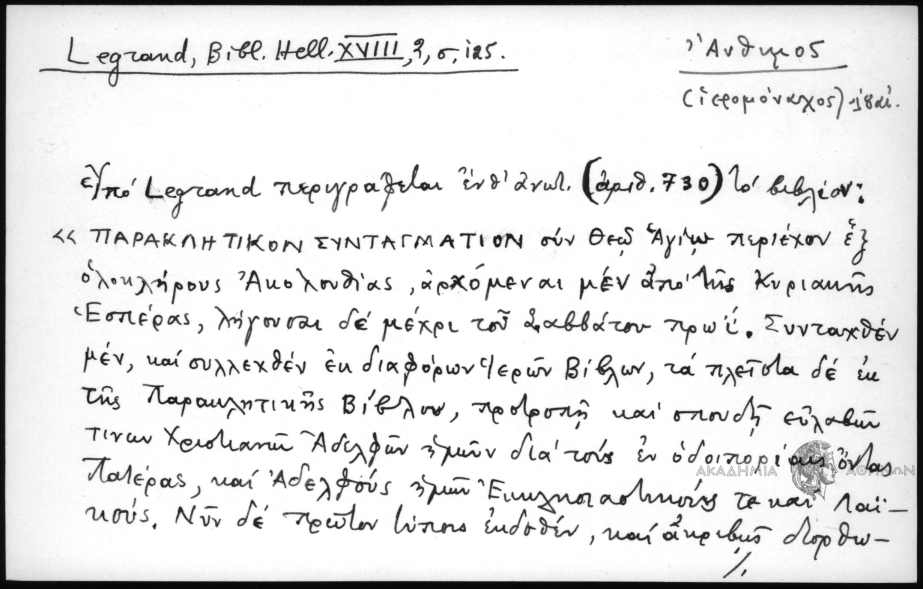 Legrand, Bibl. Hell. XVIII, 2, σ, 125.
Ἄνθιμος
(ἱερομόναχος) 18 αἰ.
Ὑπό Legrand περιγράφεται ἐνθ' ἀνωτ. (ἀριθ. 730) τό βιβλίον:
« ΠΑΡΑΚΛΗΤΙΚΟΝ ΣΥΝΤΑΓΜΑΤΙΟΝ σύν Θεῷ Ἁγίῳ περιέχον ἓξ
ὁλοκλήρους Ἀκολουθίας, ἀρχόμεναι μέν ἀπό τῆς Κυριακῆς
Ἑσπέρας, λήγουσαι δέ μέχρι τοῦ Σαββάτου πρωΐ. Συνταχθέν
μέν, καί συλλεχθέν ἐκ διαφόρων Ἱερῶν Βίβλων, τά πλεῖστα δέ ἐκ
τῆς Παρακλητικῆς Βίβλου, προτροπῇ καί σπουδῇ εὐλαβῶν
τινων Χριστιανῶν Ἀδελφῶν ἡμῶν διά τούς ἐν ὁδοιπορίαις ὄντας
Πατέρας, καί Ἀδελφούς ἡμῶν Ἐκκλησιαστικούς τε καί Λαϊ-
κούς. Νῦν δέ πρῶτον τύποις ἐκδοθέν, καί ἀκριβῶς διορθω-
./.
ΑΚΑΔΗΜΙΑ ΑΘΗΝΩΝ